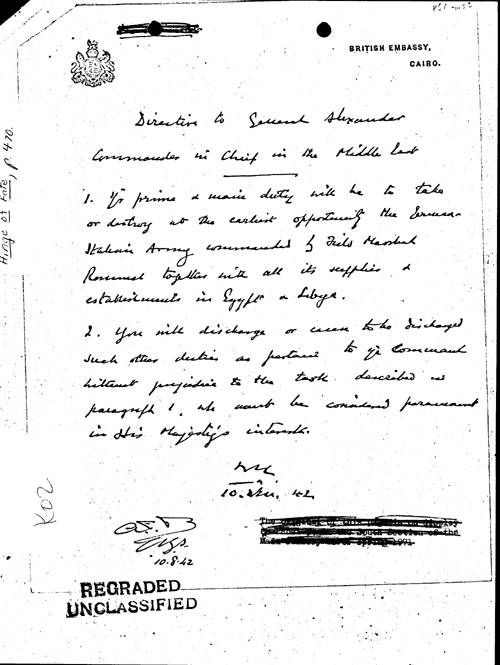 BRITISH EMBASSY,
CAIRO.
Directive to General Alexander
Commander in Chief in the Middle East
1. Yr prime & main duty will be to take
or destroy at the earliest opportunity the German-
Italian Army commanded by Field Marshal
Rommel together with all its supplies &
establishments in Egypt & Libya.
2. You will discharge or cause to be discharged
such other duties as pertain to yr Command
without prejudice to the task described in
paragraph 1, wh must be considered paramount
in His Majesty's interests.
10. 42
10.8.42
REGRADED
UNCLASSIFIED
Hinge of Fate, p. 470.
K02